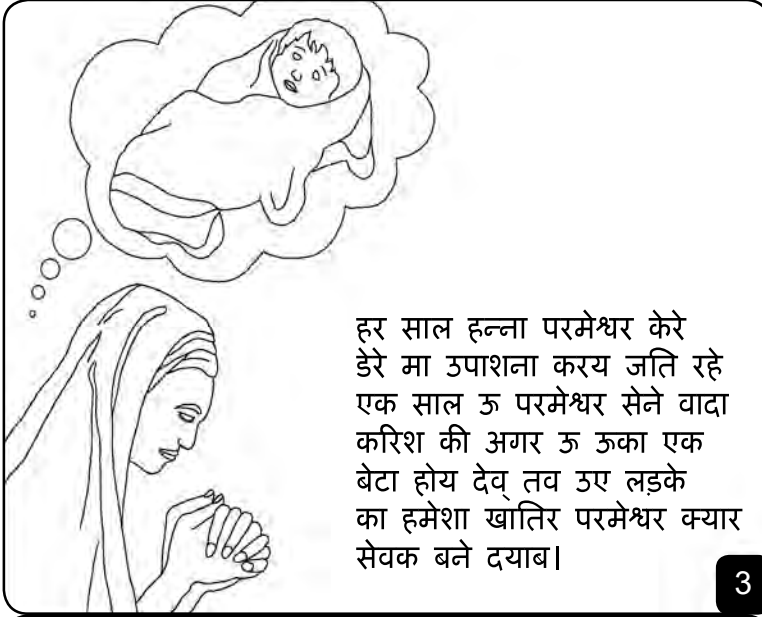 हर साल हन्ना परमेश्वर केरे
डेरे मा उपाशना करय जति रहे
एक साल ऊ परमेश्वर सेने वादा
करिश की अगर ऊ ऊका एक
बेटा होय देव् तव उए लड़के
का हमेशा खातिर परमेश्वर क्यार
सेवक बने दयाब।
3